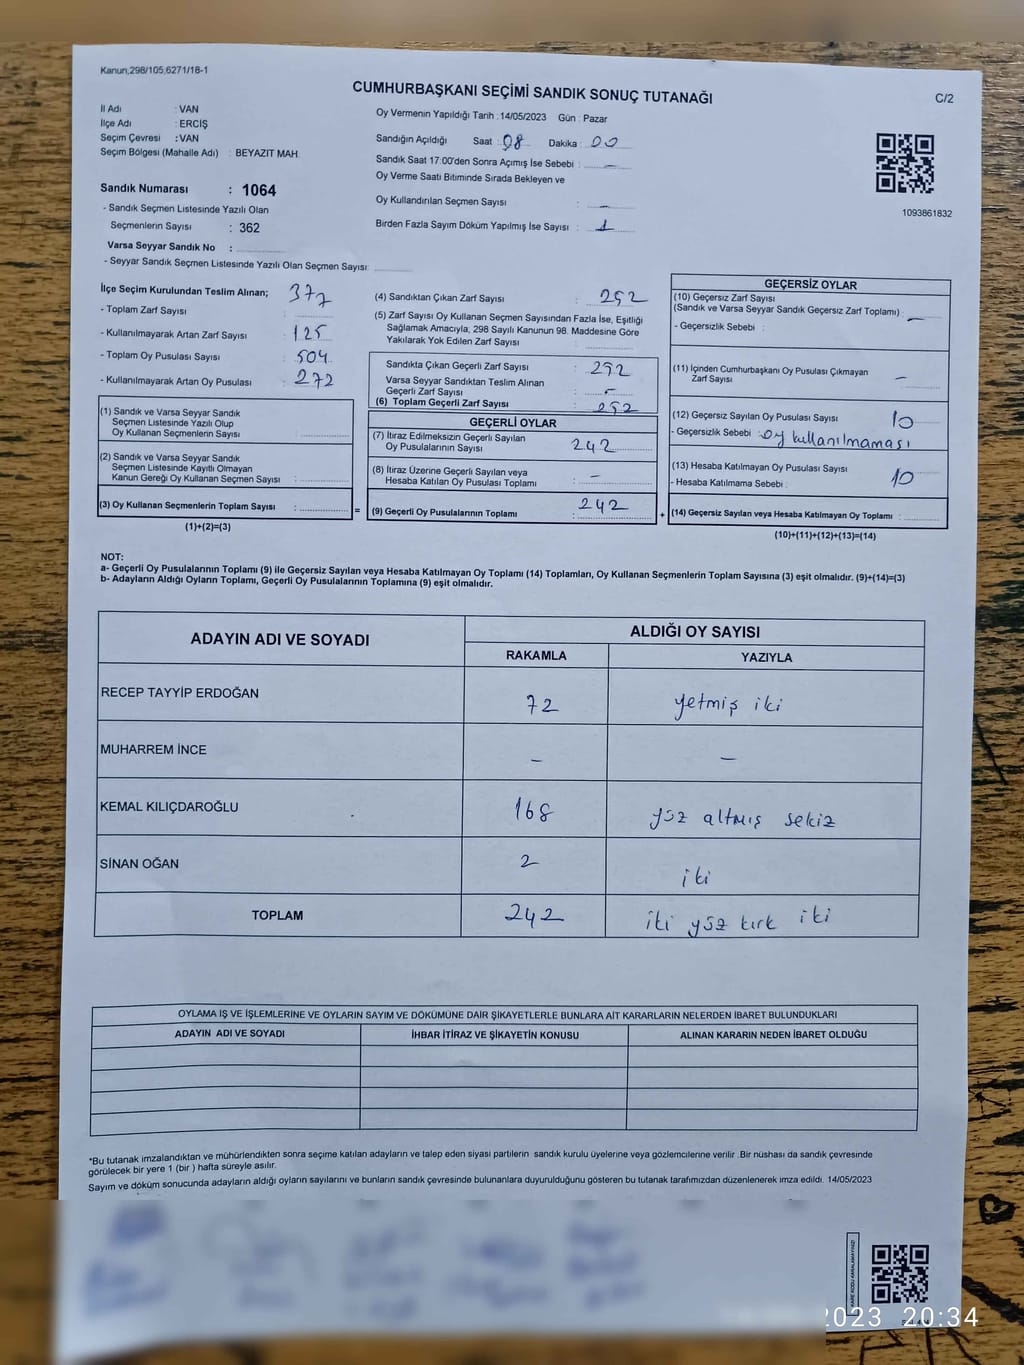 Kanun,298/105,6271/18-1
CUMHURBAŞKANI SEÇİMİ SANDIK SONUÇ TUTANAĞI
C/2
İl Adı : VAN
İlçe Adı : ERCİŞ
Seçim Çevresi : VAN
Seçim Bölgesi (Mahalle Adı) : BEYAZIT MAH.
Oy Vermenin Yapıldığı Tarih : 14/05/2023 Gün : Pazar
Sandığın Açıldığı Saat : 08 Dakika : 00
Sandık Saat 17:00'den Sonra Açımış İse Sebebi : –
Oy Verme Saati Bitiminde Sırada Bekleyen ve
Oy Kullandırılan Seçmen Sayısı : –
Birden Fazla Sayım Döküm Yapılmış İse Sayısı : 1
1093861832
Sandık Numarası : 1064
- Sandık Seçmen Listesinde Yazılı Olan
Seçmenlerin Sayısı : 362
Varsa Seyyar Sandık No :
- Seyyar Sandık Seçmen Listesinde Yazılı Olan Seçmen Sayısı:
İlçe Seçim Kurulundan Teslim Alınan; 377
- Toplam Zarf Sayısı :
- Kullanılmayarak Artan Zarf Sayısı : 125
- Toplam Oy Pusulası Sayısı : 504
- Kullanılmayarak Artan Oy Pusulası : 272
(1) Sandık ve Varsa Seyyar Sandık
Seçmen Listesinde Yazılı Olup
Oy Kullanan Seçmenlerin Sayısı :
(2) Sandık ve Varsa Seyyar Sandık
Seçmen Listesinde Kayıtlı Olmayan
Kanun Gereği Oy Kullanan Seçmen Sayısı :
(3) Oy Kullanan Seçmenlerin Toplam Sayısı : =
(1)+(2)=(3)
(4) Sandıktan Çıkan Zarf Sayısı : 252
(5) Zarf Sayısı Oy Kullanan Seçmen Sayısından Fazla İse, Eşitliği
Sağlamak Amacıyla, 298 Sayılı Kanunun 98. Maddesine Göre
Yakılarak Yok Edilen Zarf Sayısı :
Sandıkta Çıkan Geçerli Zarf Sayısı : 252
Varsa Seyyar Sandıktan Teslim Alınan
Geçerli Zarf Sayısı : –
(6) Toplam Geçerli Zarf Sayısı : 252
GEÇERLİ OYLAR
(7) İtiraz Edilmeksizin Geçerli Sayılan
Oy Pusulalarının Sayısı : 242
(8) İtiraz Üzerine Geçerli Sayılan veya
Hesaba Katılan Oy Pusulası Toplamı : –
(9) Geçerli Oy Pusulalarının Toplamı : 242 +
GEÇERSİZ OYLAR
(10) Geçersiz Zarf Sayısı
(Sandık ve Varsa Seyyar Sandık Geçersiz Zarf Toplamı) : –
- Geçersizlik Sebebi :
(11) İçinden Cumhurbaşkanı Oy Pusulası Çıkmayan
Zarf Sayısı –
(12) Geçersiz Sayılan Oy Pusulası Sayısı 10
- Geçersizlik Sebebi : oy kullanılmaması
(13) Hesaba Katılmayan Oy Pusulası Sayısı 10
- Hesaba Katılmama Sebebi :
(14) Geçersiz Sayılan veya Hesaba Katılmayan Oy Toplamı :
(10)+(11)+(12)+(13)=(14)
NOT:
a- Geçerli Oy Pusulalarının Toplamı (9) ile Geçersiz Sayılan veya Hesaba Katılmayan Oy Toplamı (14) Toplamları, Oy Kullanan Seçmenlerin Toplam Sayısına (3) eşit olmalıdır. (9)+(14)=(3)
b- Adayların Aldığı Oyların Toplamı, Geçerli Oy Pusulalarının Toplamına (9) eşit olmalıdır.
ADAYIN ADI VE SOYADI
ALDIĞI OY SAYISI
RAKAMLA YAZIYLA
RECEP TAYYİP ERDOĞAN 72 yetmiş iki
MUHARREM İNCE – –
KEMAL KILIÇDAROĞLU 168 yüz altmış sekiz
SİNAN OĞAN 2 iki
TOPLAM 242 iki yüz kırk iki
OYLAMA İŞ VE İŞLEMLERİNE VE OYLARIN SAYIM VE DÖKÜMÜNE DAİR ŞİKAYETLERLE BUNLARA AİT KARARLARIN NELERDEN İBARET BULUNDUKLARI
ADAYIN ADI VE SOYADI İHBAR İTİRAZ VE ŞİKAYETİN KONUSU ALINAN KARARIN NEDEN İBARET OLDUĞU
*Bu tutanak imzalandıktan ve mühürlendikten sonra seçime katılan adayların ve talep eden siyasi partilerin sandık kurulu üyelerine veya gözlemcilerine verilir .Bir nüshası da sandık çevresinde
görülecek bir yere 1 (bir ) hafta süreyle asılır.
Sayım ve döküm sonucunda adayların aldığı oyların sayılarını ve bunların sandık çevresinde bulunanlara duyurulduğunu gösteren bu tutanak tarafımızdan düzenlenerek imza edildi. 14/05/2023
2023 20:34